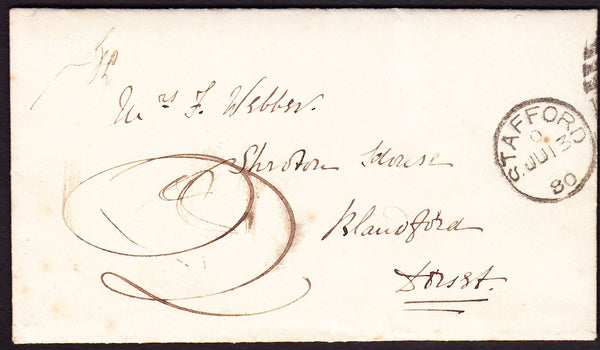 Mrs F. Webber.
Shroton House
Blandford
Dorset.
STAFFORD
JU 13
80